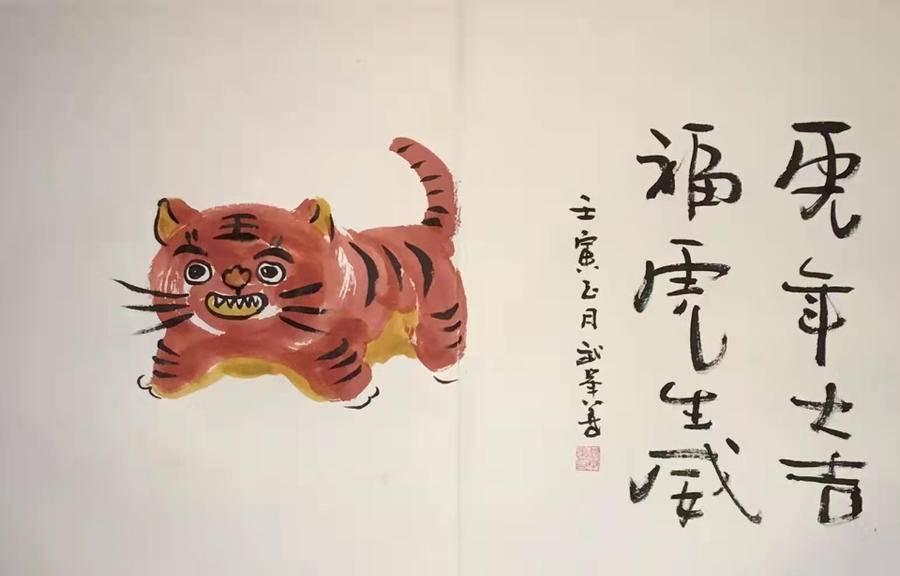 虎年大吉
福虎生威
壬寅正月
王